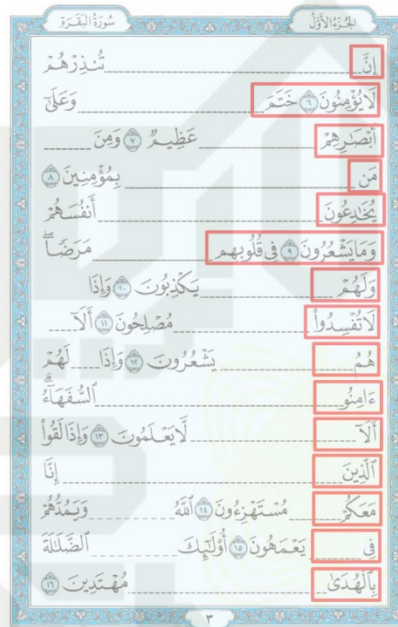 الجزء الأول سورة البقرة
إِنَّ تُنذِرْهُمْ
لَا يُؤْمِنُونَ ٦ خَتَمَ وَعَلَىٰٓ
أَبْصَٰرِهِمْ عَظِيمٌ ٧ وَمِنَ
مَن بِمُؤْمِنِينَ ٨
يُخَٰدِعُونَ أَنفُسَهُمْ
وَمَا يَشْعُرُونَ ٩ فِى قُلُوبِهِم مَرَضًا ۖ
وَلَهُمْ يَكْذِبُونَ ١٠ وَإِذَا
لَا تُفْسِدُوا۟ مُصْلِحُونَ ١١ أَلَآ
هُمُ يَشْعُرُونَ ١٢ وَإِذَا لَهُمْ
ءَامِنُو ٱلسُّفَهَآءُ ۗ
أَلَآ لَا يَعْلَمُونَ ١٣ وَإِذَا لَقُوا۟
ٱلَّذِينَ إِنَّا
مَعَكُمْ مُسْتَهْزِءُونَ ١٤ ٱللَّهُ وَيَمُدُّهُمْ
فِى يَعْمَهُونَ ١٥ أُو۟لَٰٓئِكَ ٱلضَّلَٰلَةَ
بِٱلْهُدَىٰ مُهْتَدِينَ ١٦
٣